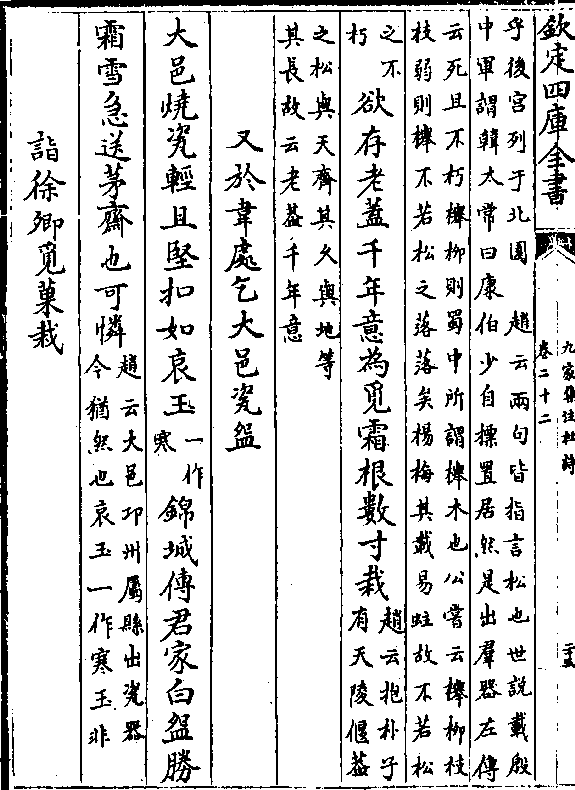 欽定四庫全書
九家集注杜詩
卷二十二
乎後宮列于北園 趙云兩句皆指言松也世説載殷
中軍謂韓太常曰康伯少自標置居然是出羣器左傳
云死且不朽櫸柳則蜀中所謂櫸木也公嘗云櫸柳枝
枝弱則櫸不若松之落落矣楊梅其栽易蛀故不若松
之不
朽
欲存老蓋千年意為覓霜根數寸栽
趙云抱朴子
有天陵偃葢
之松與天齊其久與地等
其長故云老葢千年意
又於韋處乞大邑瓷盌
大邑燒瓷輕且堅扣如哀玉
一作
寒
錦城傳君家白盌勝
霜雪急送茅齋也可憐
趙云大邑邛州屬縣出瓷器
今猶然也哀玉一作寒玉非
詣徐卿覓菓栽